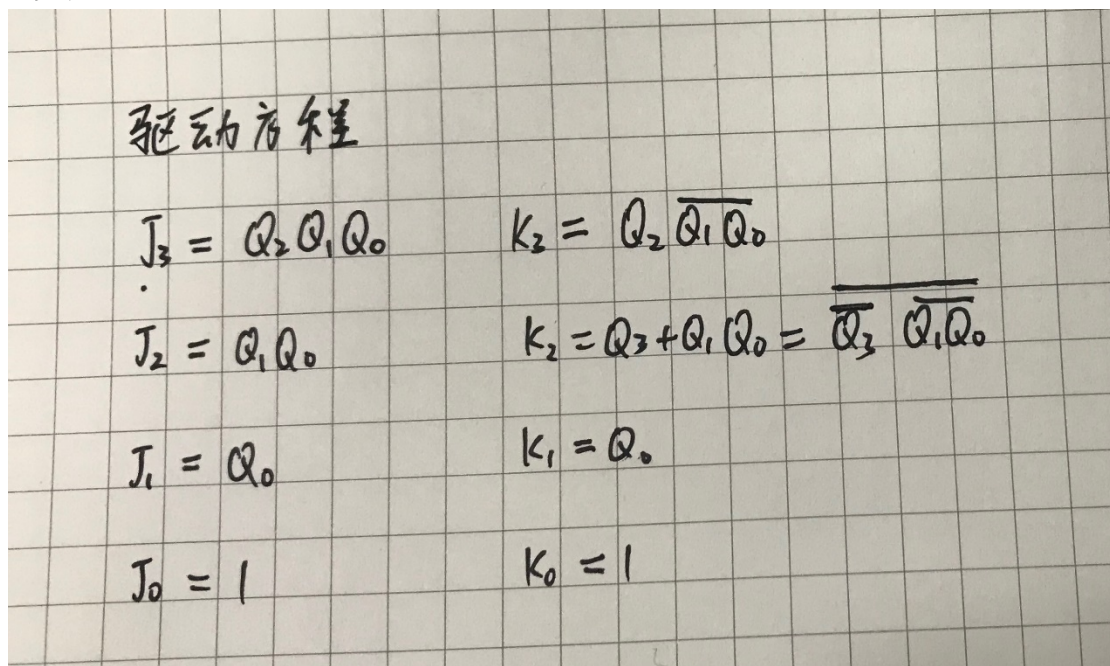 驱动方程
J₃ = Q₂Q₁Q₀ K₃ = Q₂ \overline{Q₁Q₀}
J₂ = Q₁Q₀ K₂ = Q₃+Q₁Q₀ = \overline{\overline{Q₃} \overline{Q₁Q₀}}
J₁ = Q₀ K₁ = Q₀
J₀ = 1 K₀ = 1